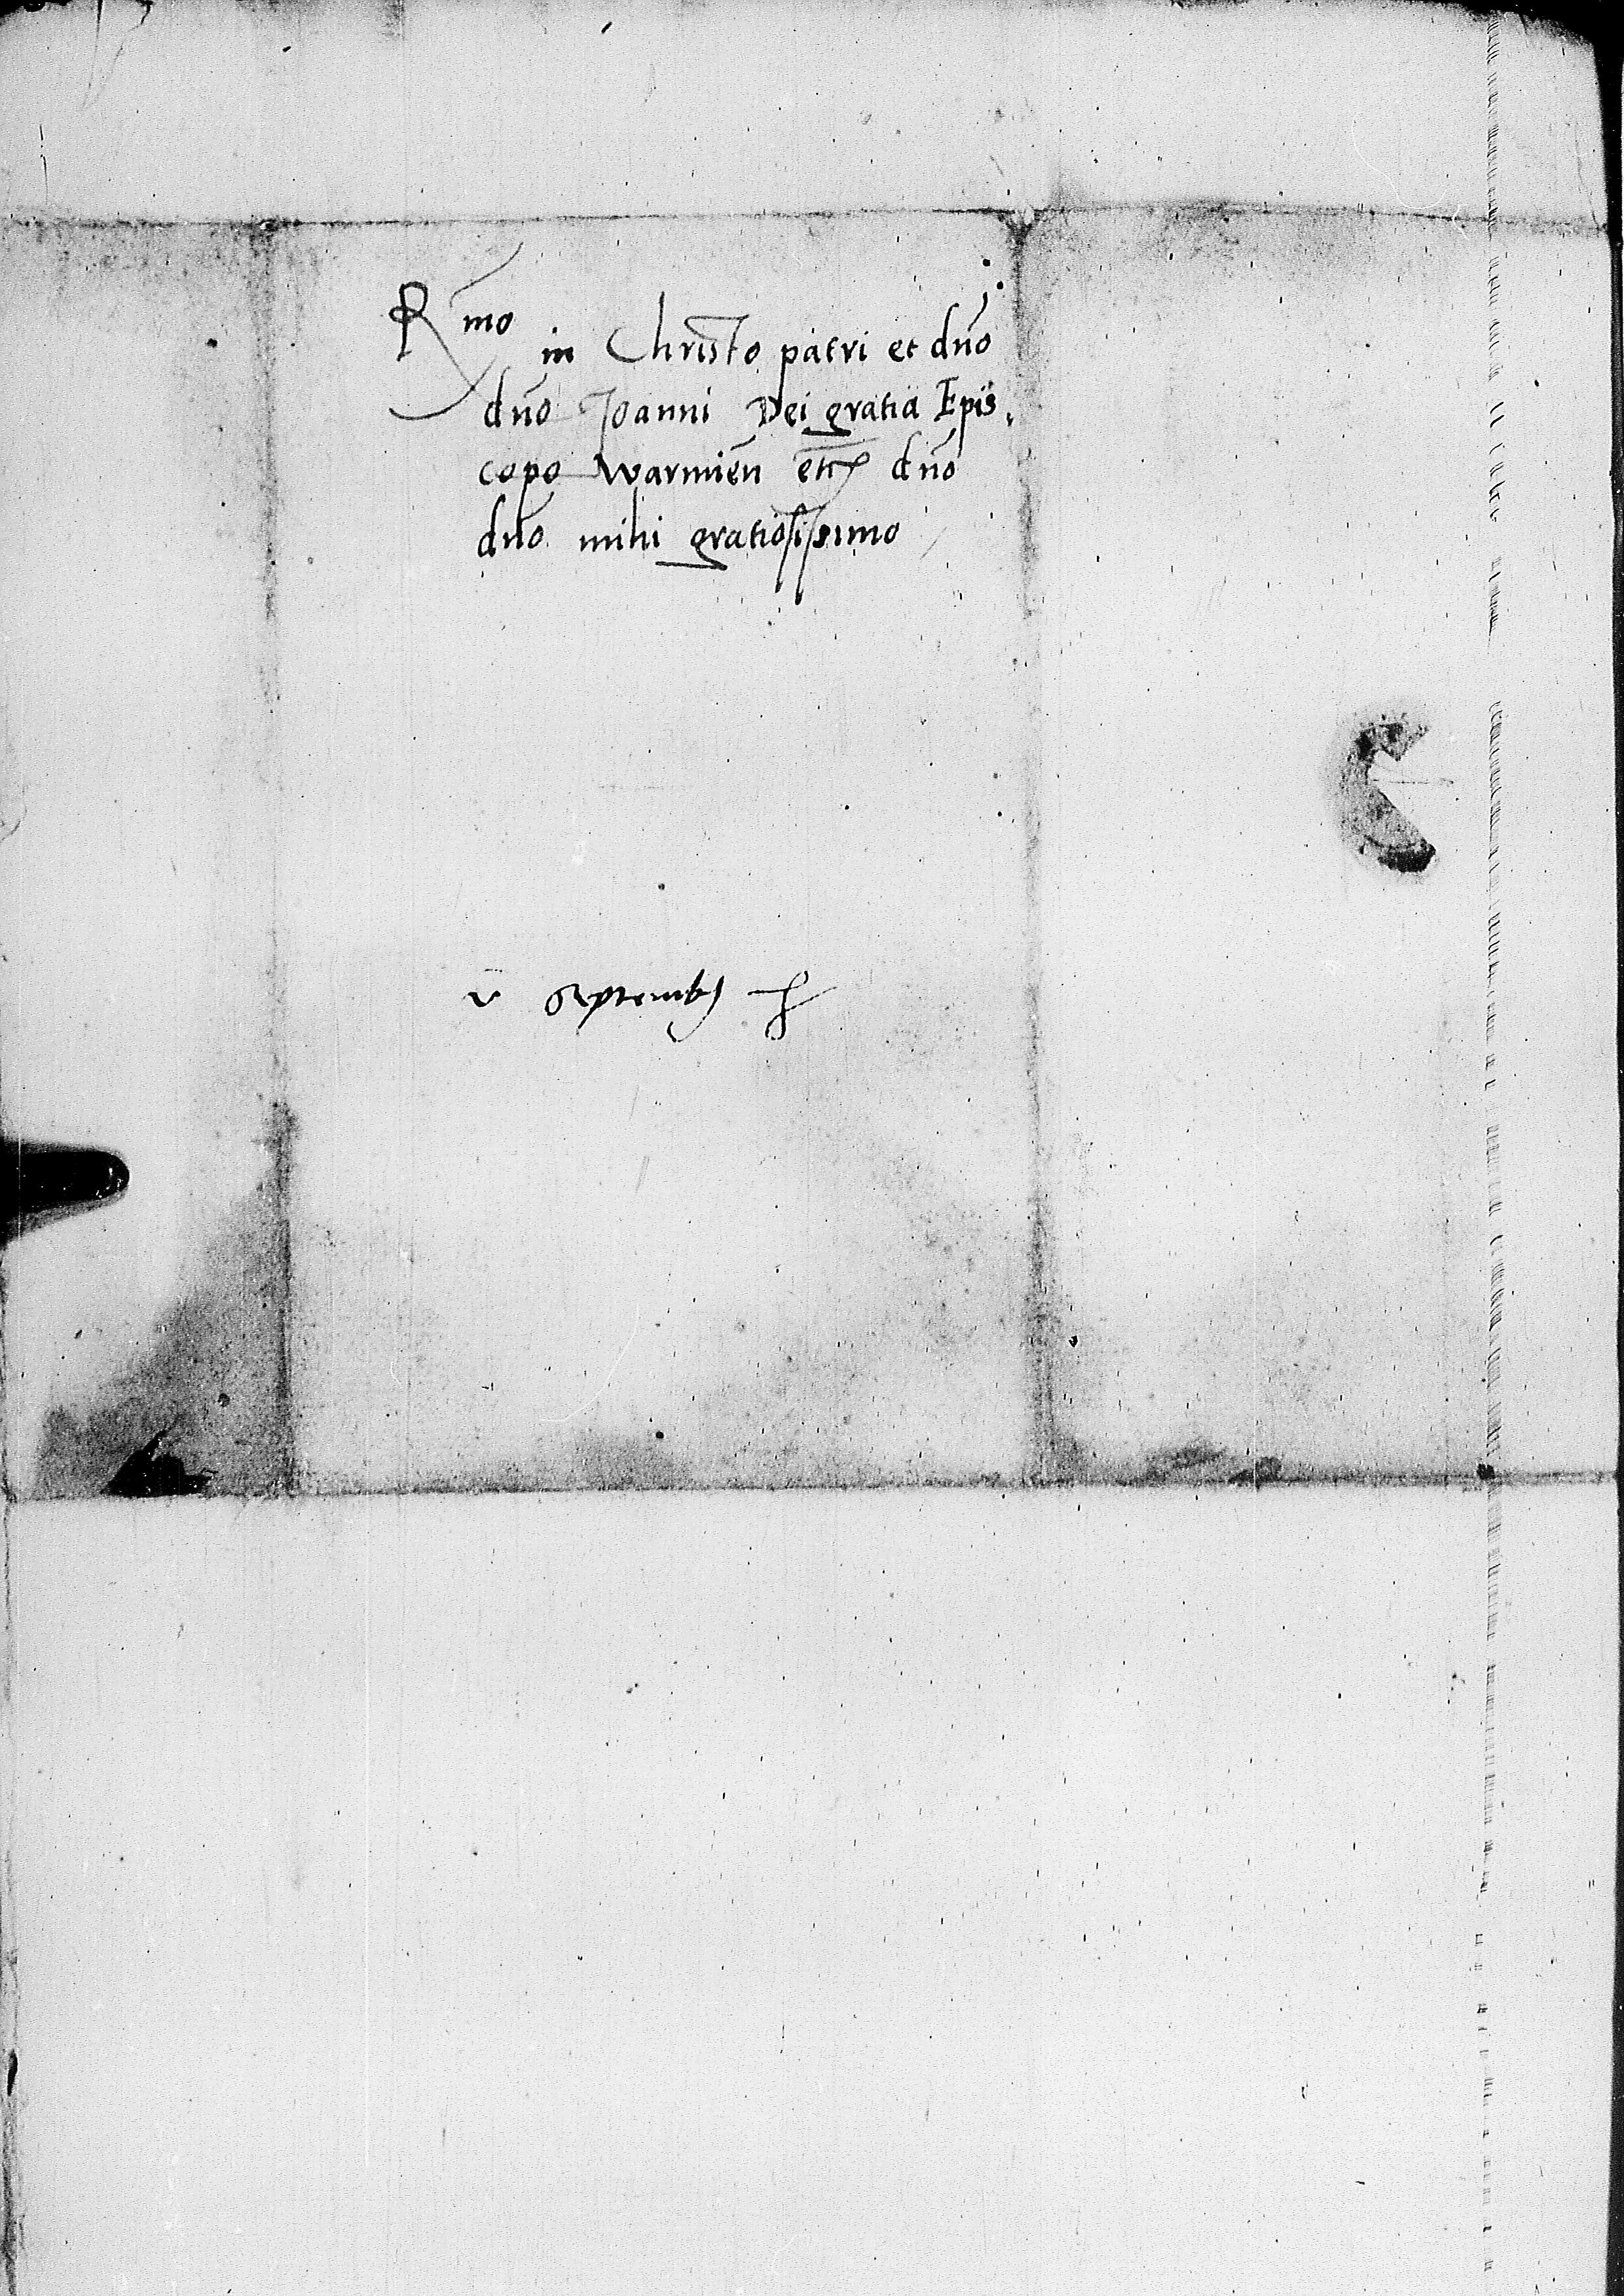 Rmo in Christo patri et dno
dno Joanni Dei gratia Epis
copo Warmien etc dno
dno mihi gratiosissimo
v Septembr